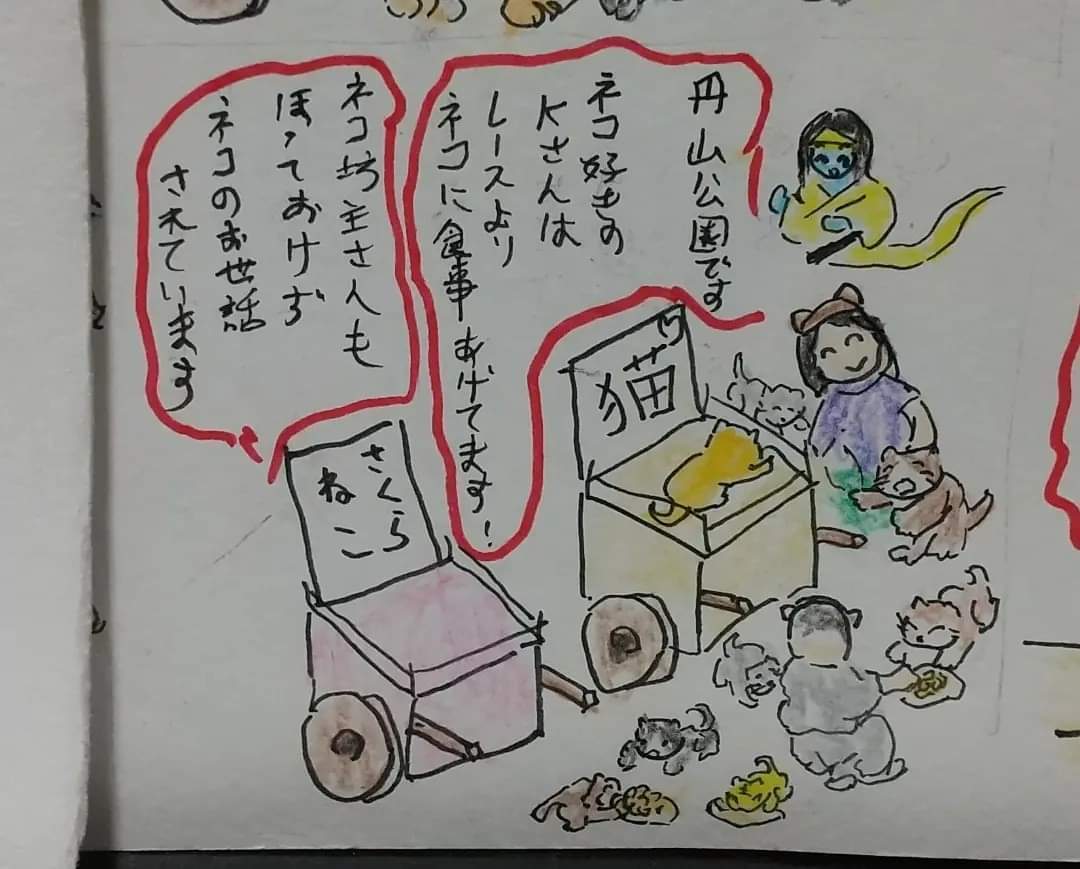 丹山公園です
ネコ好きの
Kさんは
レースより
ネコに食事あげてます!
ネコ坊主さんも
ほっておけず
ネコのお世話
されています
猫
さくら
ねこ